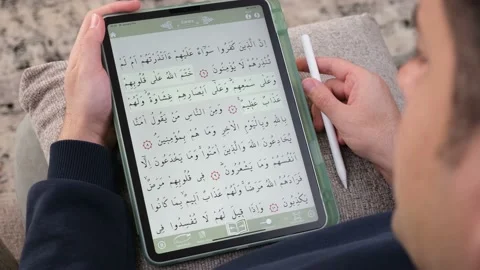 إِنَّ الَّذِينَ كَفَرُوا سَوَاءٌ عَلَيْهِمْ ءَأَنْذَرْتَهُمْ أَمْ لَمْ
تُنْذِرْهُمْ لَا يُؤْمِنُونَ ۞ خَتَمَ اللَّهُ عَلَى قُلُوبِهِمْ
وَعَلَى سَمْعِهِمْ وَعَلَى أَبْصَارِهِمْ غِشَاوَةٌ وَلَهُمْ
عَذَابٌ عَظِيمٌ ۞ وَمِنَ النَّاسِ مَنْ يَقُولُ آمَنَّا
بِاللَّهِ وَبِالْيَوْمِ الْآخِرِ وَمَا هُمْ بِمُؤْمِنِينَ ۞
يُخَادِعُونَ اللَّهَ وَالَّذِينَ آمَنُوا وَمَا يَخْدَعُونَ إِلَّا
أَنْفُسَهُمْ وَمَا يَشْعُرُونَ ۞ فِي قُلُوبِهِمْ مَرَضٌ
فَزَادَهُمُ اللَّهُ مَرَضًا وَلَهُمْ عَذَابٌ أَلِيمٌ بِمَا كَانُوا
يَكْذِبُونَ ۞ وَإِذَا قِيلَ لَهُمْ لَا تُفْسِدُوا فِي